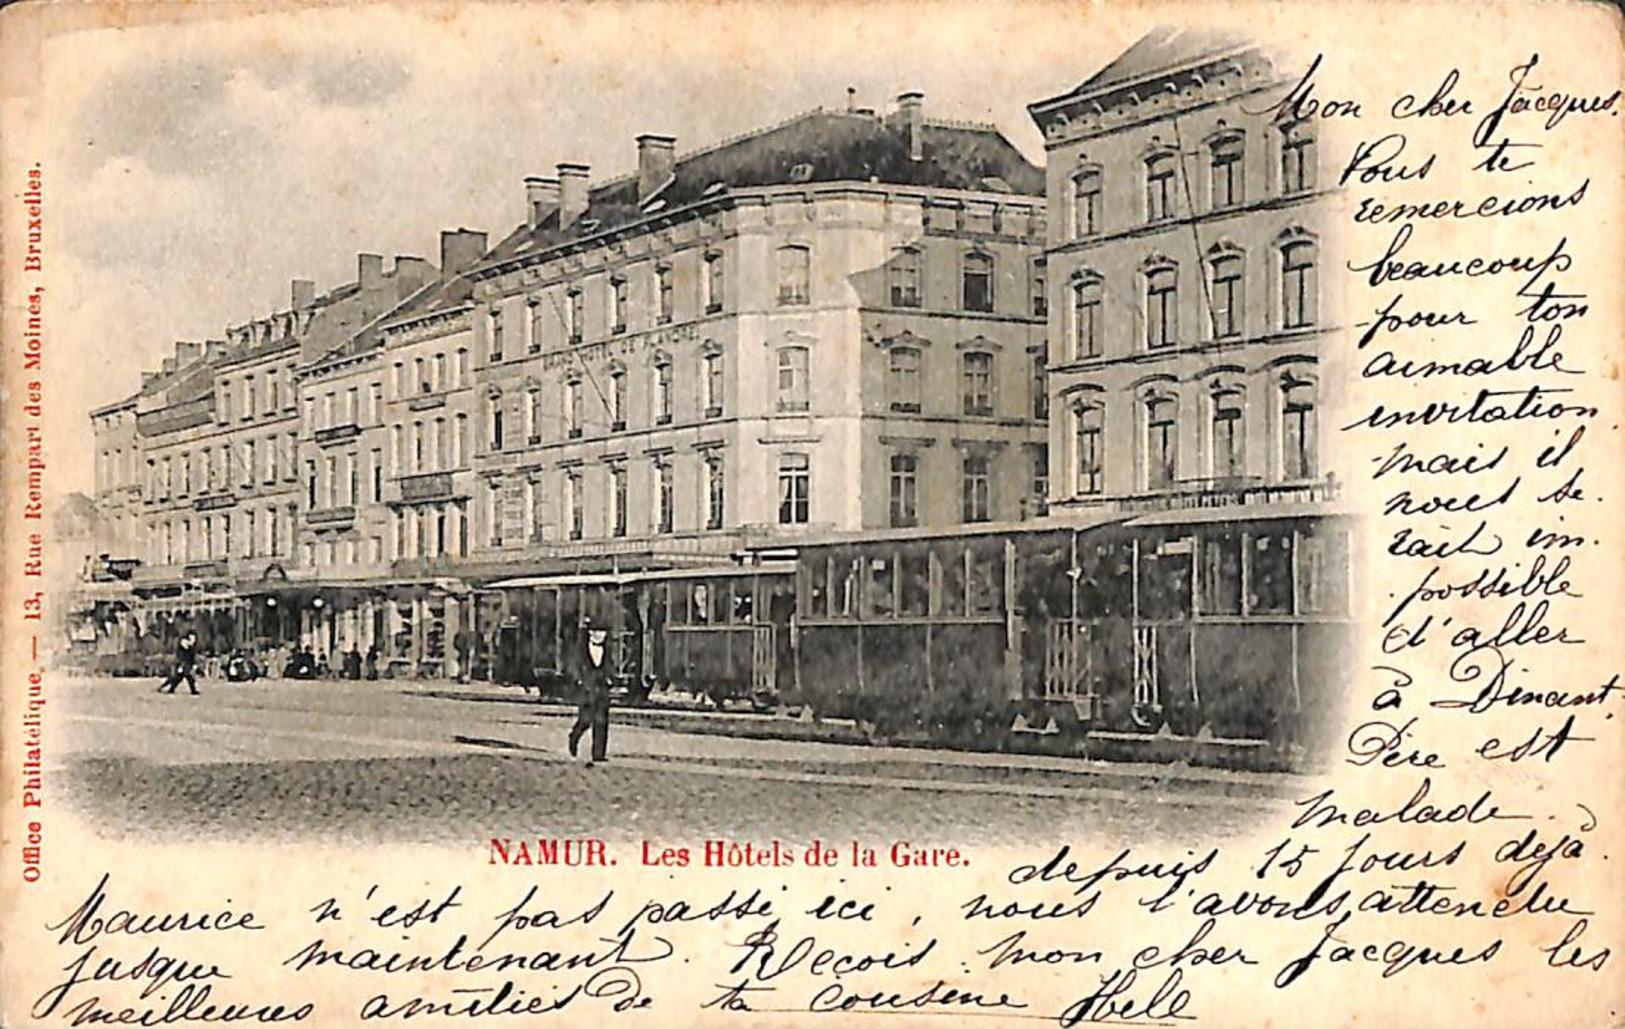 Office Philatélique. — 13, Rue Rempart des Moines, Bruxelles.
GRAND HÔTEL DE FLANDRE
NAMUR. Les Hôtels de la Gare.
Mon cher Jacques.
Nous te
remercions
beaucoup
pour ton
aimable
invitation
mais il
nous se.
rait im.
possible
d'aller
à Dinant.
Père est
malade.
depuis 15 jours dejà.
Maurice n'est pas passé ici, nous l'avons attendu
jusque maintenant. Reçois mon cher Jacques les
meilleures amitiés de ta cousine